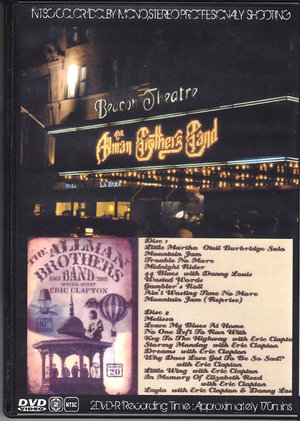 NTSC COLOR/DOLBY MONO,STEREO PROFFESIONALY SHOOTING
Beacon Theatre
the
Allman Brothers Band
THE
ALLMAN
BROTHERS
BAND
SPECIAL GUEST
ERIC CLAPTON
20
Disc 1
Little Martha Oteil Burbridge Solo
Mountain Jam
Trouble No More
Midnight Rider
44 Blues with Danny Louis
Wasted Words
Gambler's Roll
Ain't Wasting Time No More
Mountain Jam (Reprise)
Disc 2
Melissa
Leave My Blues At Home
No One Left To Run With
Key To The Highway with Eric Clapton
Stormy Monday with Eric Clapton
Dreams with Eric Clapton
Why Does Love Got To Be So Sad?
with Eric Clapton
Little Wing with Eric Clapton
In Memory Of Elizabeth Reed
with Eric Clapton
Layla with Eric Clapton & Danny Lou
DVD
VIDEO
2
NTSC
2DVD-R/Recording Time : Approximately 170mins